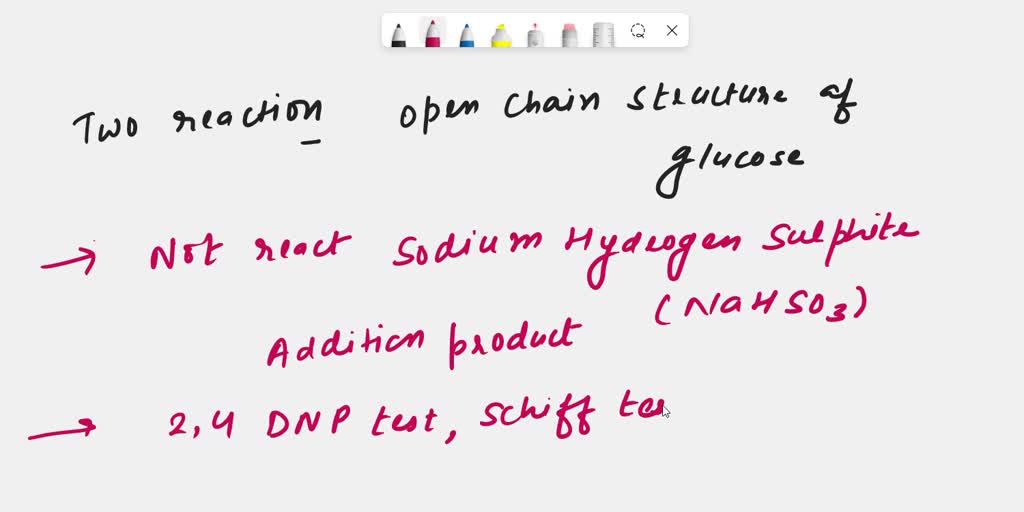 Two reaction open chain structure of
glucose
→ Not react Sodium Hydrogen Sulphite
(NaHSO3)
Addition product
→ 2,4 DNP test, Schiff tes